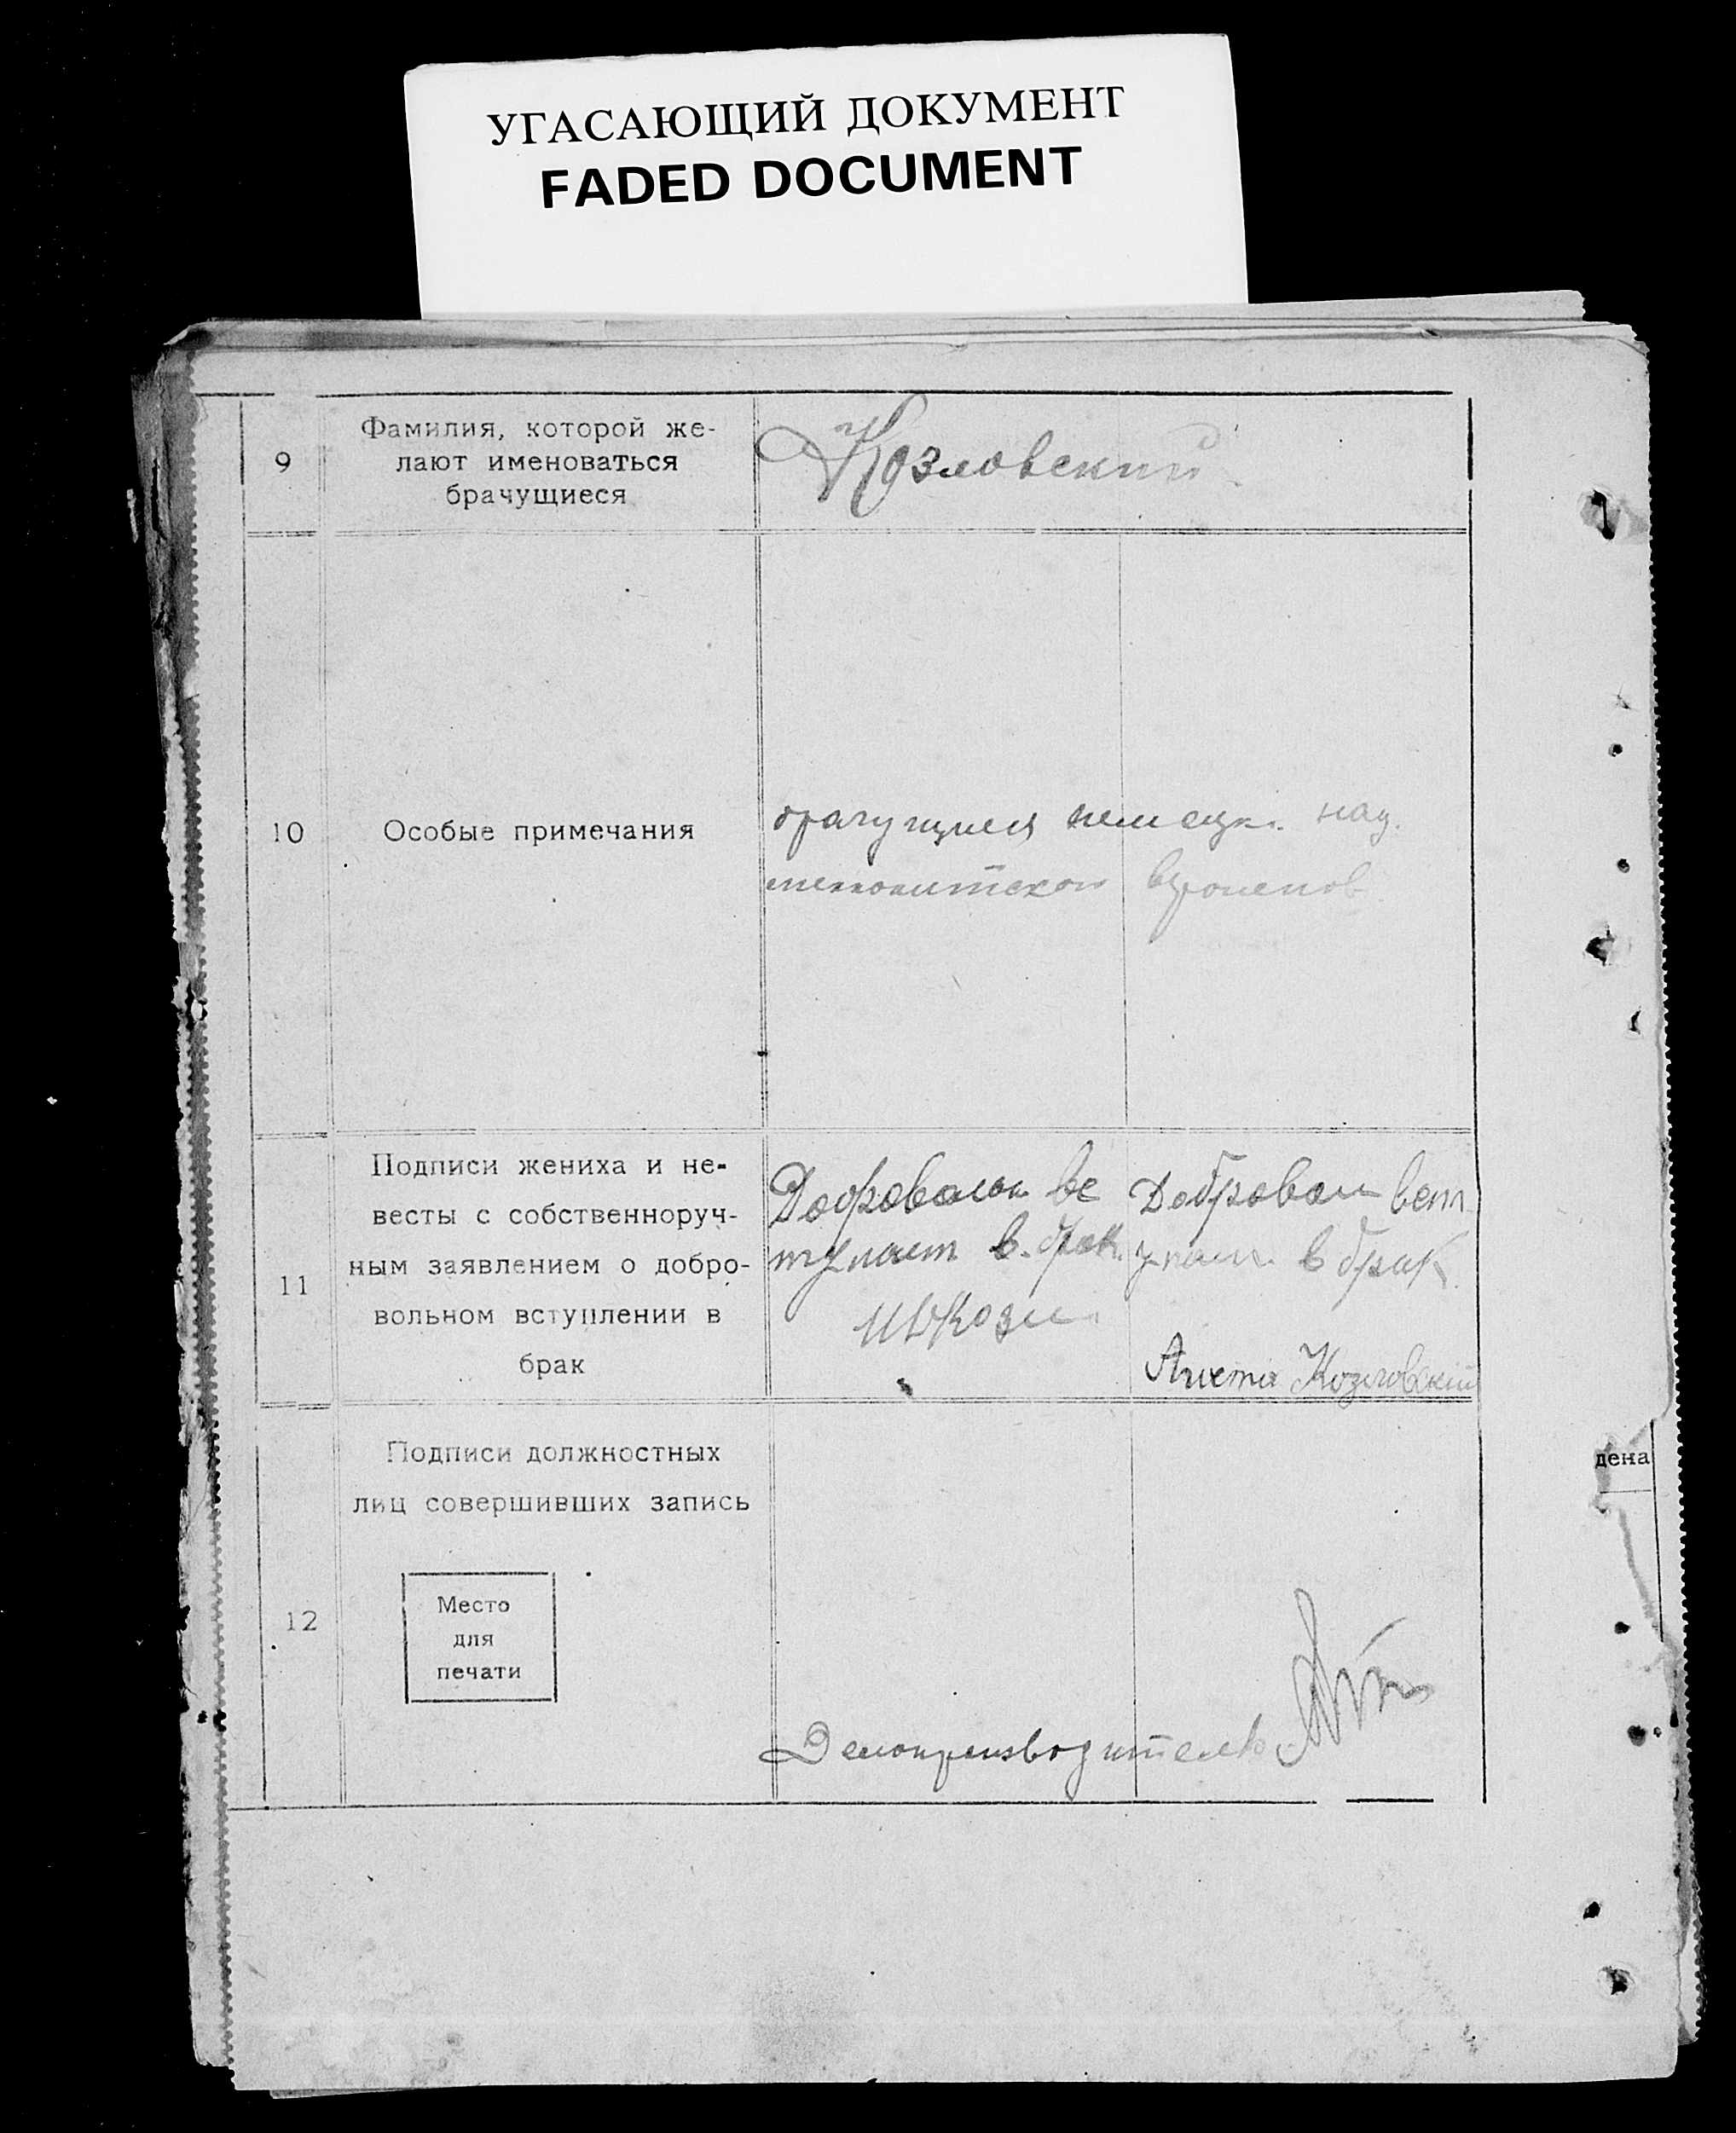 УГАСАЮЩИЙ ДОКУМЕНТ
FADED DOCUMENT
9
Фамилия, которой же-
лают именоваться
брачущиеся
Козловский
10
Особые примечания
брачущиеся немецк. нац.
меннонитском
11
Подписи жениха и не-
весты с собственноруч-
ным заявлением о добро-
вольном вступлении в
брак
Добровольн вс
тупаем в. брак.
Добровольн вст
упаем в брак
Козловский
дена
12
Подписи должностных
лиц совершивших запись
Место
для
печати
Делопроизводитель